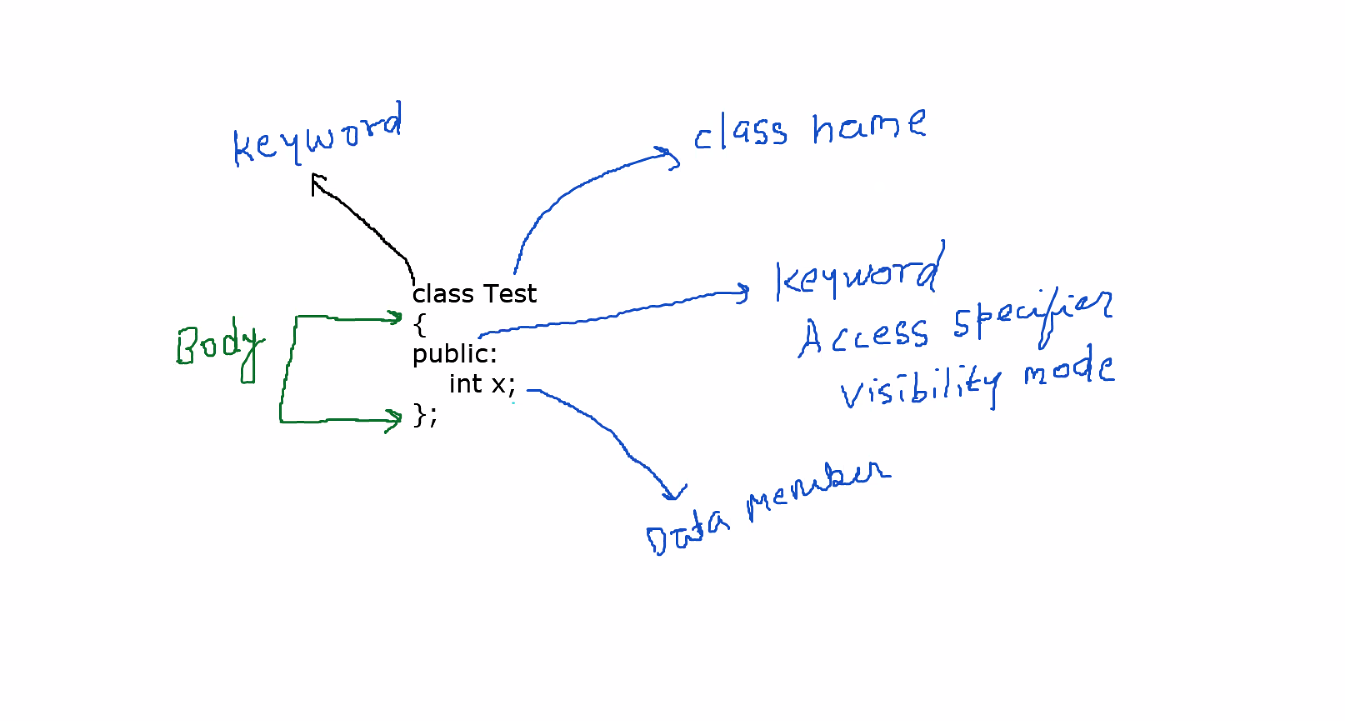 keyword
class name
class Test
{
public:
int x;
};
Body
keyword
Access specifier
visibility mode
Data member